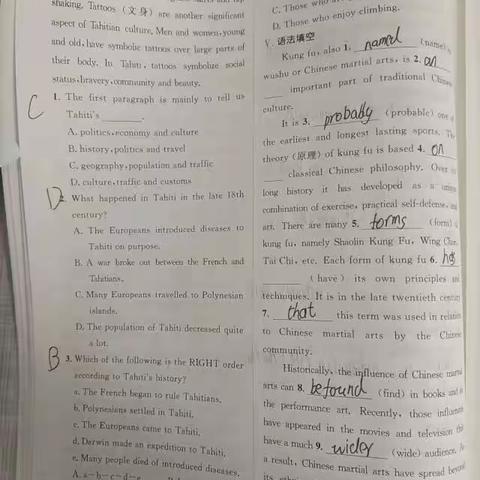 shaking. Tattoos (文身) are another significant
aspect of Tahitian culture. Men and women, young
and old, have symbolic tattoos over large parts of
their body. In Tahiti, tattoos symbolize social
status, bravery, community and beauty.
C 1. The first paragraph is mainly to tell us
Tahiti's ________.
A. politics, economy and culture
B. history, politics and travel
C. geography, population and traffic
D. culture, traffic and customs
D 2. What happened in Tahiti in the late 18th
century?
A. The Europeans introduced diseases to
Tahiti on purpose.
B. A war broke out between the French and
Tahitians.
C. Many Europeans travelled to Polynesian
islands.
D. The population of Tahiti decreased quite
a lot.
B 3. Which of the following is the RIGHT order
according to Tahiti's history?
a. The French began to rule Tahitians.
b. Polynesians settled in Tahiti.
c. The Europeans came to Tahiti.
d. Darwin made an expedition to Tahiti.
e. Many people died of introduced diseases.
A. a—b—c—d—e
C. Those who
D. Those who enjoy climbing.
V. 语法填空
Kung fu, also 1. named (name)
wushu or Chinese martial arts, is 2. an
____ important part of traditional Chinese
culture.
It is 3. probably (probable) one of
the earliest and longest lasting sports. The
theory (原理) of kung fu is based 4. on
____ classical Chinese philosophy. Over its
long history it has developed as a unique
combination of exercise, practical self-defense,
art. There are many 5. forms (form) of
kung fu, namely Shaolin Kung Fu, Wing Chun,
Tai Chi, etc. Each form of kung fu 6. has
____ (have) its own principles and
techniques. It is in the late twentieth century
7. that this term was used in relation
to Chinese martial arts by the Chinese
community.
Historically, the influence of Chinese martial
arts can 8. befound (find) in books and in
the performance art. Recently, those influences
have appeared in the movies and television
have a much 9. wider (wide) audience. As
a result, Chinese martial arts have spread beyond
its